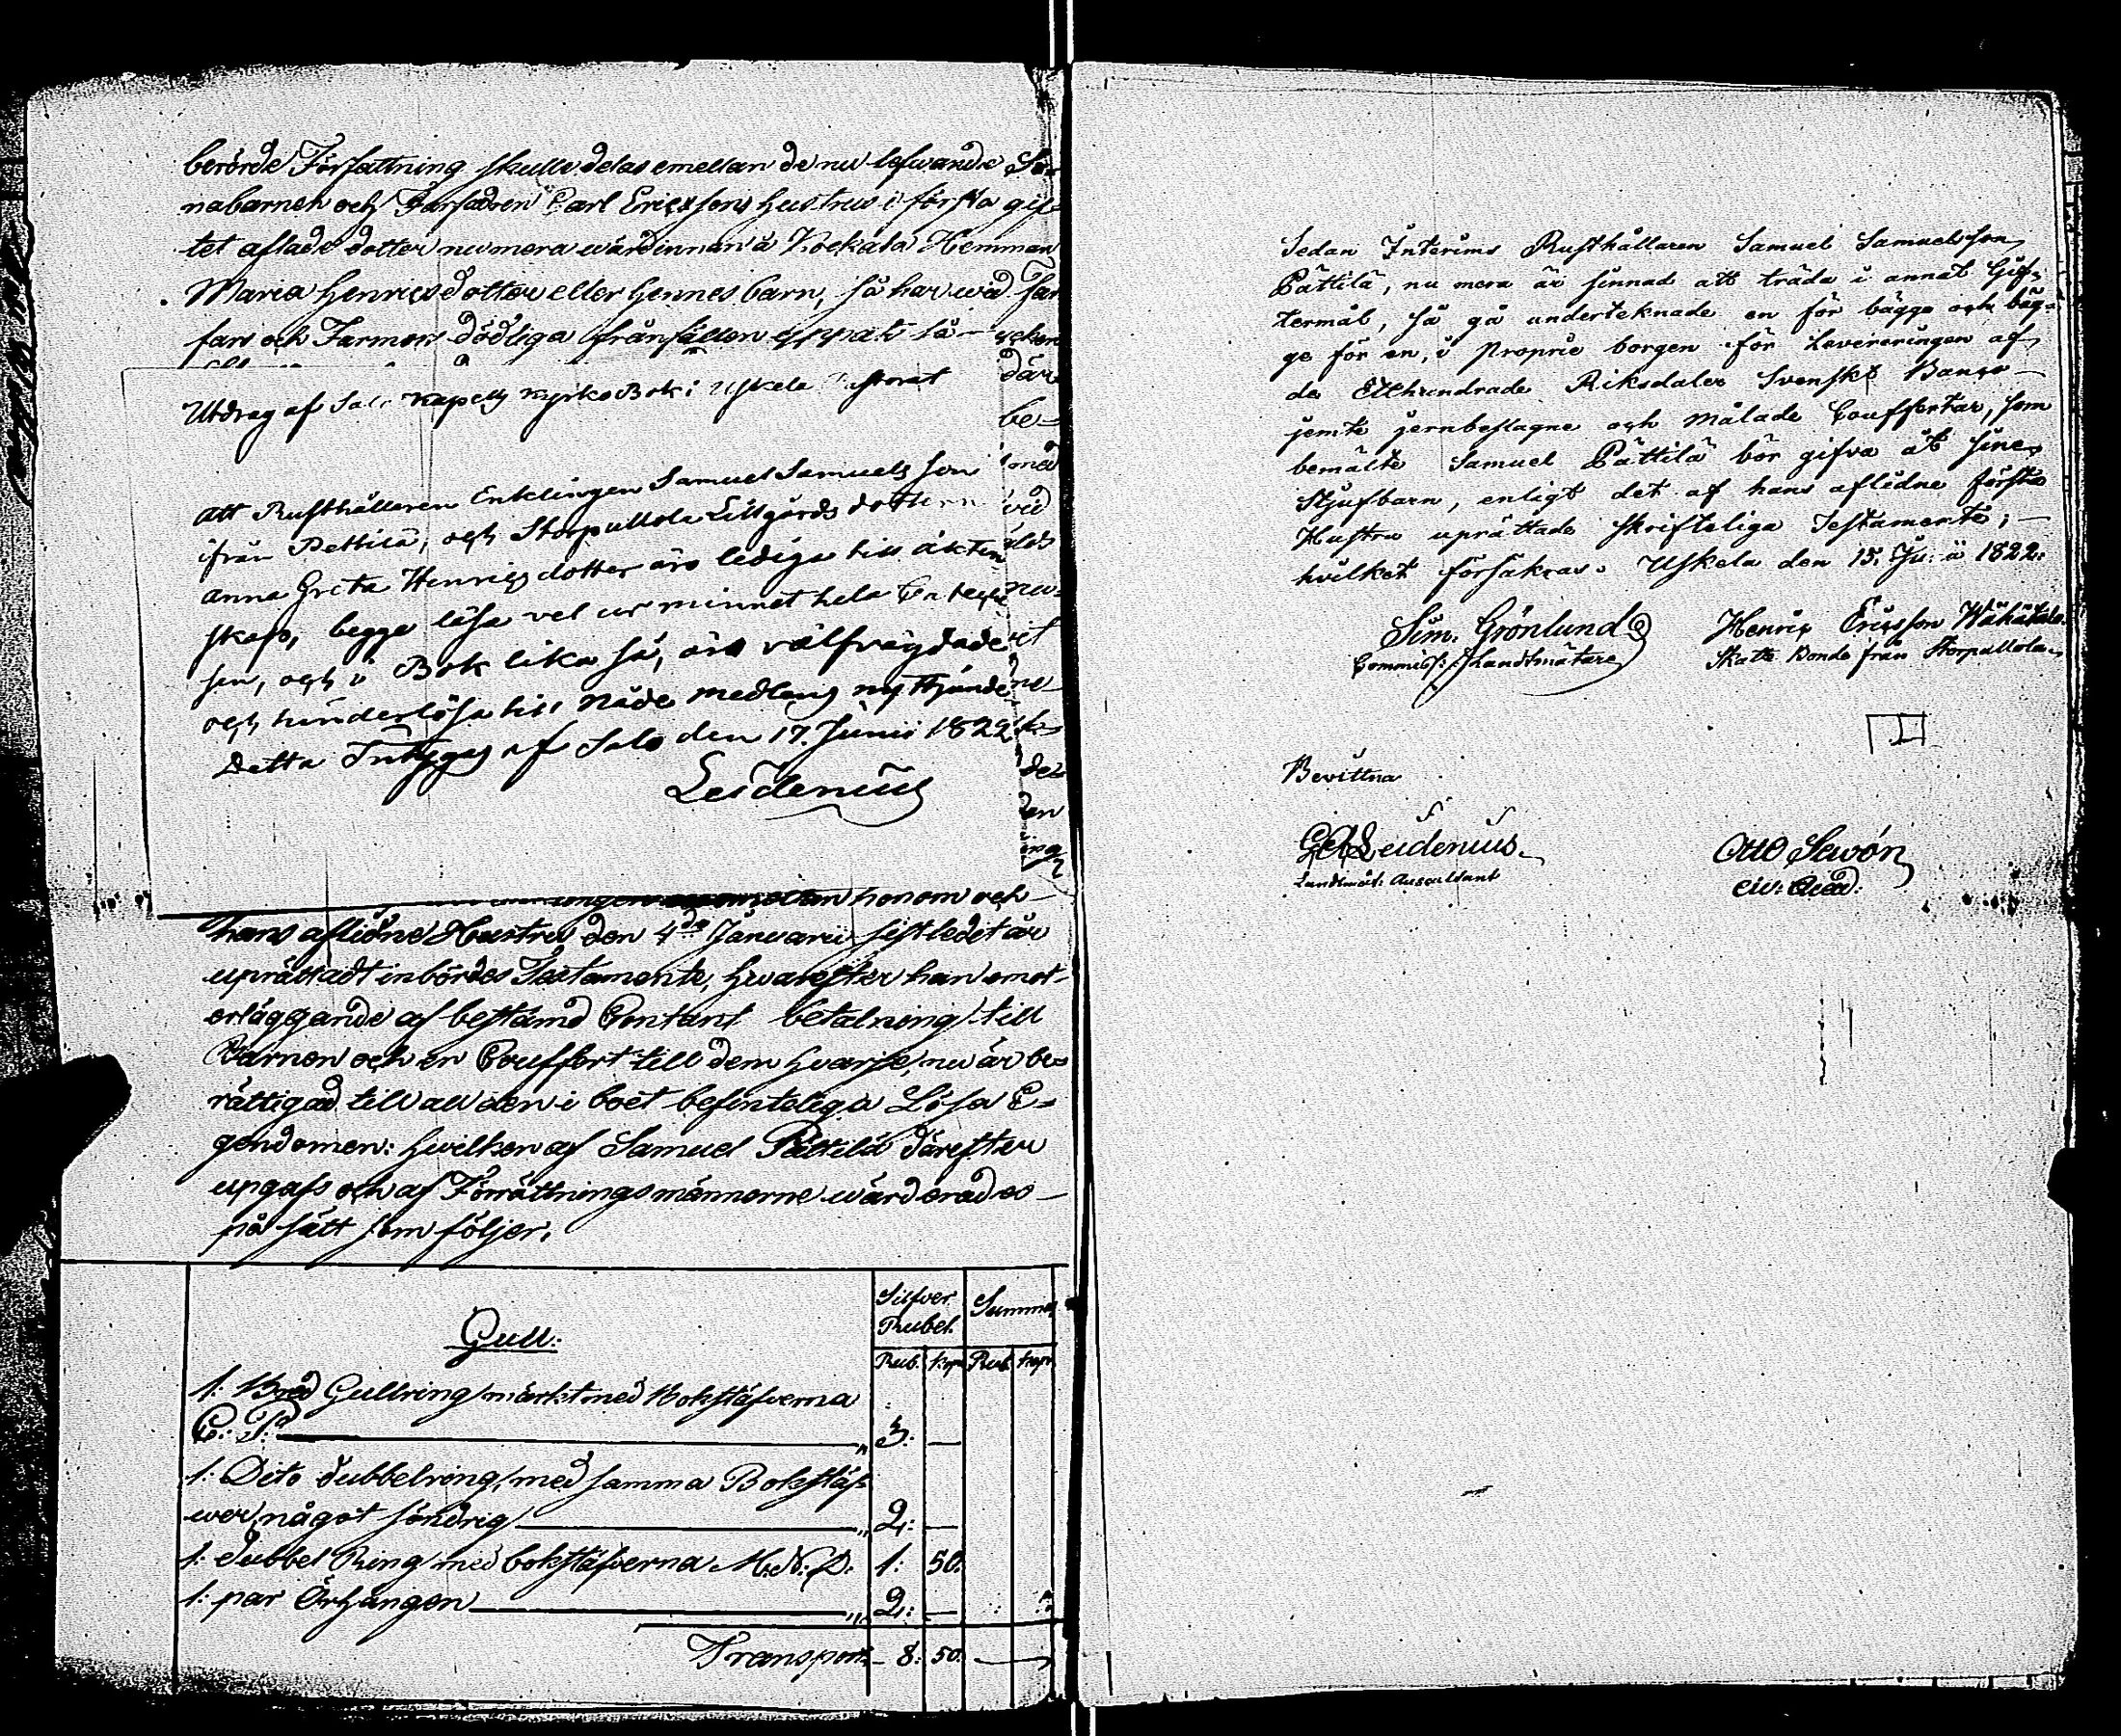 berörde Författning skulle delas emellan de nu lefwande Sön-
nabarnen och Farfadren Carl Ericssons hustrus i första gif-
tet aflade dotter numera wärdinnan å Kockala Hemman
Maria Henricsdotter eller hennes barn, så har wid Far
fars och Farmors dödliga frånfällen
Utdrag af Salo Kapells Kyrko Bok i Uskela Pastorat
Att Rusthållaren Enklingen Samuel Samuels son
ifrån Pettilä, och Storpullola Lillgårds dottren
Anna Greta Henrics dotter äro lediga till äkten
skap, begge läsa vel ur minnet hela Cateche
sen, och i Bok lika så, äro välfrägdade
och hinderlösa till Nåde medlens nyttjande
Detta Intygas af Salo den 17. Junii 1822.
Leidenius
där
be-
med
vid
nu-
de
den
honom och
hans aflidne Hustru den 4de Januarii sistledet år
uprättadt inbördes Testamente, hwarefter han emot
erläggande af bestämd Contant betalning till
Barnen och en Couffert till dem hwarje, nu är be-
rättigad till all den i boet befinteliga Lösa E-
gendomen: hwilken af Samuel Pättilä därefter
upgafs och af Förrättningsmännerne wärderades
på sätt som följer.
Silfver Rubel. Summa
Gull:
Rub. kop. Rub. kop.
1: Bred Gullring märkt med Bokstäfverna
C: P: 3: —
1: Dito dubbelring, med samma Bokstäf-
wer, något söndrig 2: —
1: dubbel Ring med bokstäfverna M: D: 1: 50.
1: par Örhängen 2: —
Transport 8: 50.
Sedan Interims Rusthållaren Samuel Samuelsson
Pättilä, nu mera är sinnad att träda i annat Gif-
termål, så gå underteknade en för bägge och bäg-
ge för en, i proprie borgen för Levereringen af
de Etthundrade Riksdaler Svenskt Banco
jemte jernbeslagne och målade Couffertar, som
bemälte Samuel Pättilä bör gifva åt sine
Stjufbarn, enligt det af hans aflidne första
Hustru uprättade skrifteliga Testamente;
hvilket försäkras. Uskela den 15. Ju: ä 1822.
Sim. Grönlund Henric Ericsson Wähätalo.
Commiss: Landtmätare Skatte Bonde från Storpullola
Bevittna
G A Leidenius. Otto Sewón
Landtmät: Auscultant